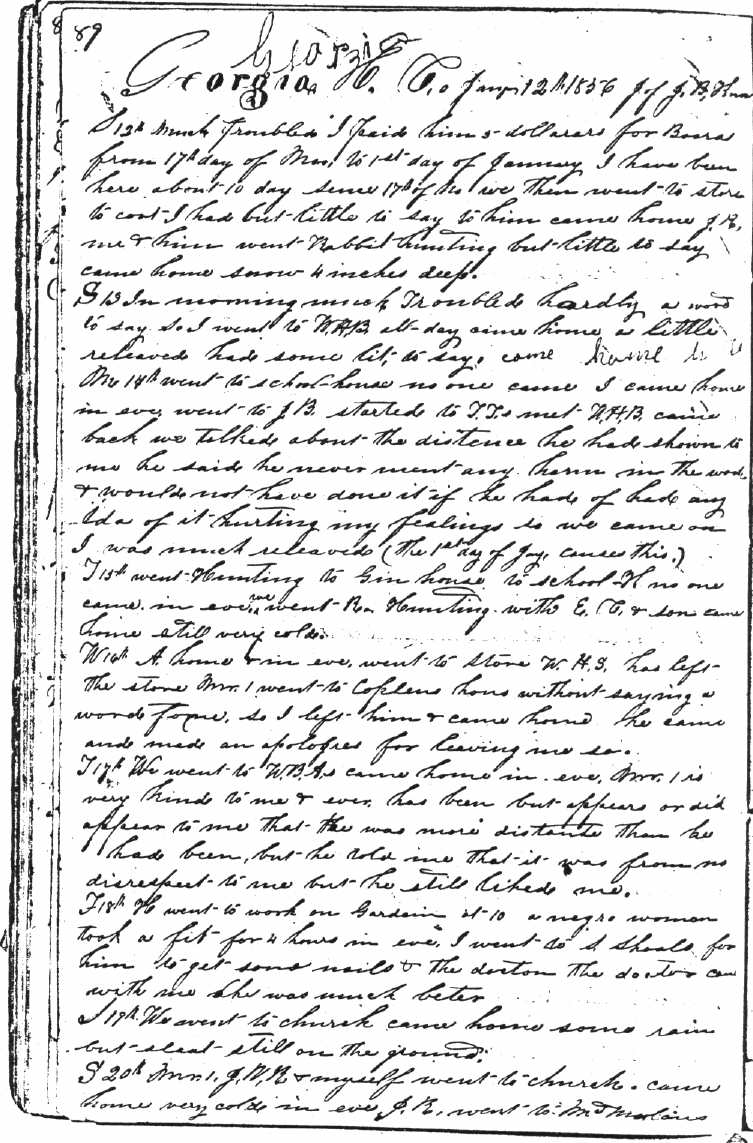 89
Georgia
Georgia C. Co Jany 12th 1856 J of J. B.
S 12th Much Troubled I paid him 5 dollarars for Board
from 17th day of to 1st day of January I have been
here about 10 day sence 17th of No we then went to store
to coat I had but little to say to him came home J. R,
me & him went Rabbit hunting but little to say
came home snow 4 inches deep.
S 13 In morning much Troubled hardly a word
to say so I went to W.H.B all day came home a little
releaved had some lit, to say. come home
Mo 14th went to school house no one came I came home
in eve, went to J B. started to T.T.s met W.H.B. came
back we talked about the distence he had shown to
me he said he never ment any harm in the world
& would not have done it if he had of had any
Ida of it hurting my fealings so we came on
I was much releaved (the 1st day of Jay, causes this.)
T 15th went Hunting to Gin house to school H no one
came in eve, we went R. Hunting with E. C. & son came
home still very cold.
W 16th A. home & in eve, went to store W H. S. has left
the store Mr. 1 went to hous without saying a
word so I left him & came home he came
and made an apologies for leaving me so.
T 17th We went to W B. As came home in eve, Mr. 1 is
very kind to me & ever has been but appears or did
appear to me that he was more distante than he
had been, but he told me that it was from no
disrespect to me but he still liked me.
F 18th H went to work on Gardain at 10 a negro women
took a fit for 4 hours in eve, I went to S Shoals for
him to get some nails & the doctor the doctor came
with me she was much beter
S 19th We went to church came home some rain
but sleat still on the ground.
S 20th Mr. 1, J, W, R & myself went to church. came
home very cold in eve J. R, went to